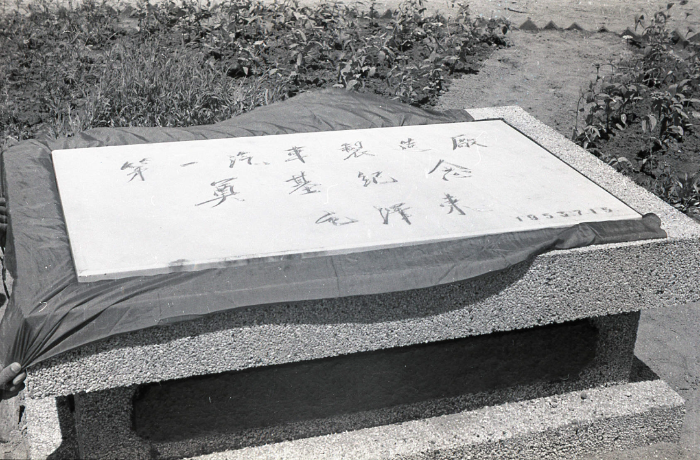 第一汽车製造厰
奠基纪念
毛泽东
1953715